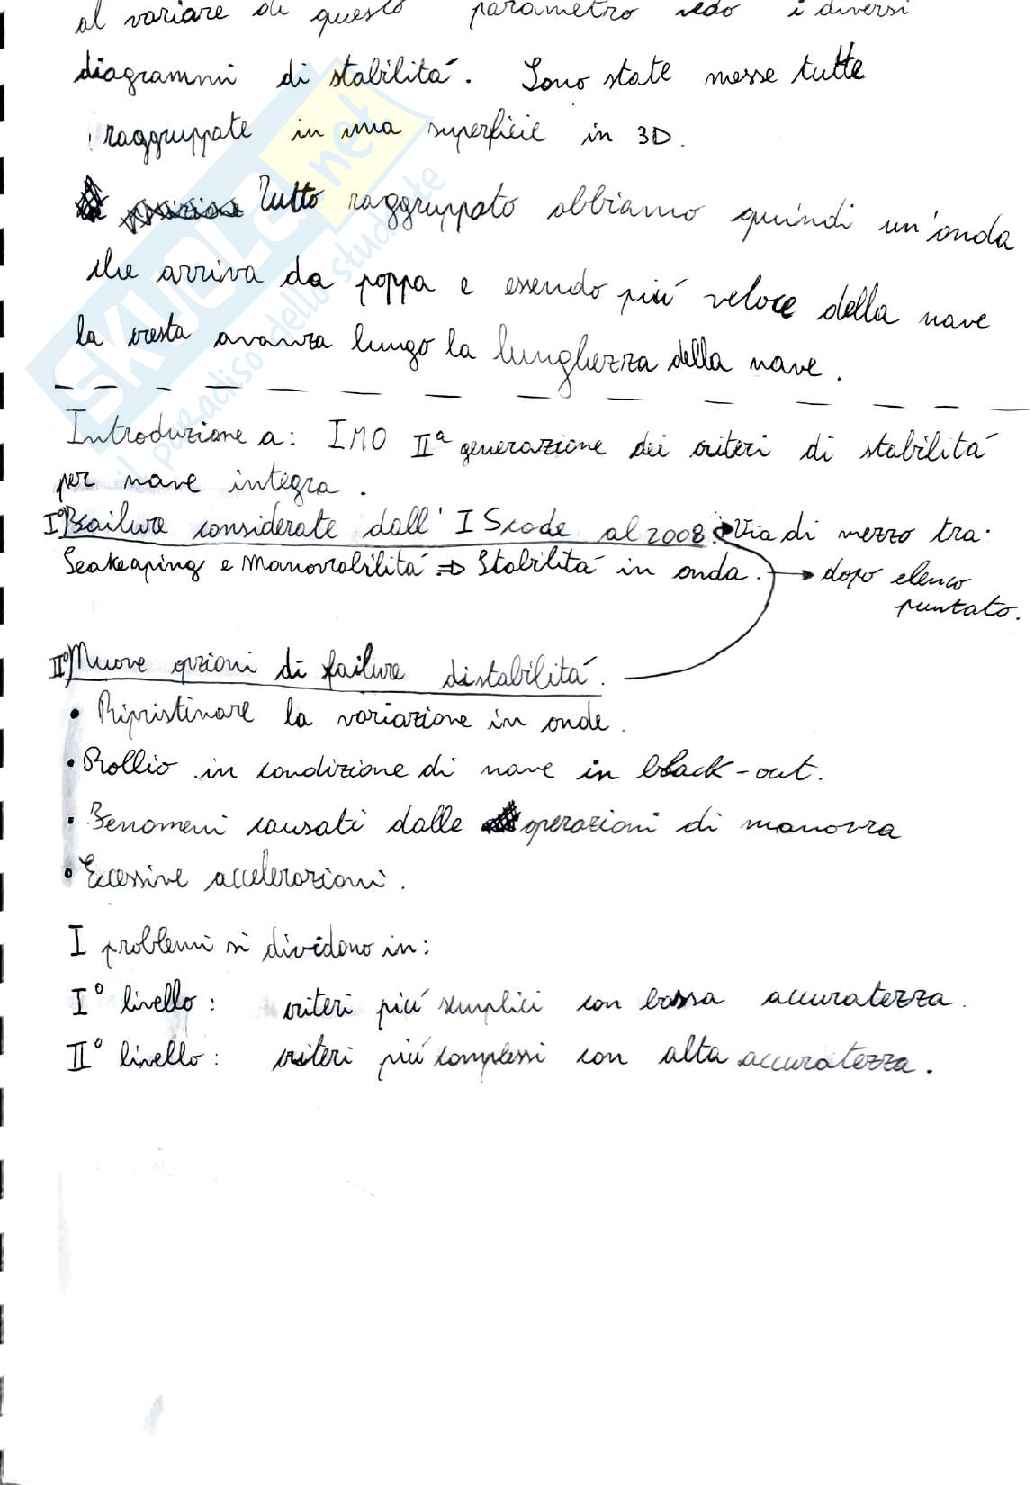 al variare di questo parametro vedo i diversi
diagrammi di stabilitá. Sono state messe tutte
raggruppate in una superficie in 3D.
Tutto raggruppato abbiamo quindi un'onda
che arriva da poppa e essendo piú veloce della nave
la cresta avanza lungo la lunghezza della nave.
Introduzione a: IMO IIª generazione dei criteri di stabilitá
per nave integra.
I°) Failure considerate dall' IScode al 2008: Via di mezzo tra
Seakeaping e Manovrabilitá => Stabilitá in onda. → dopo elenco
puntato.
II°) Nuove opzioni di failure di stabilitá.
• Ripristinare la variazione in onde.
• Rollio in condizione di nave in black-out.
• Fenomeni causati dalle operazioni di manovra
• Eccessive accelerazioni.
I problemi si dividono in:
I° livello: criteri piú semplici con bassa accuratezza.
II° livello: criteri piú complessi con alta accuratezza.
SKUOLA.net
il paradiso dello studente